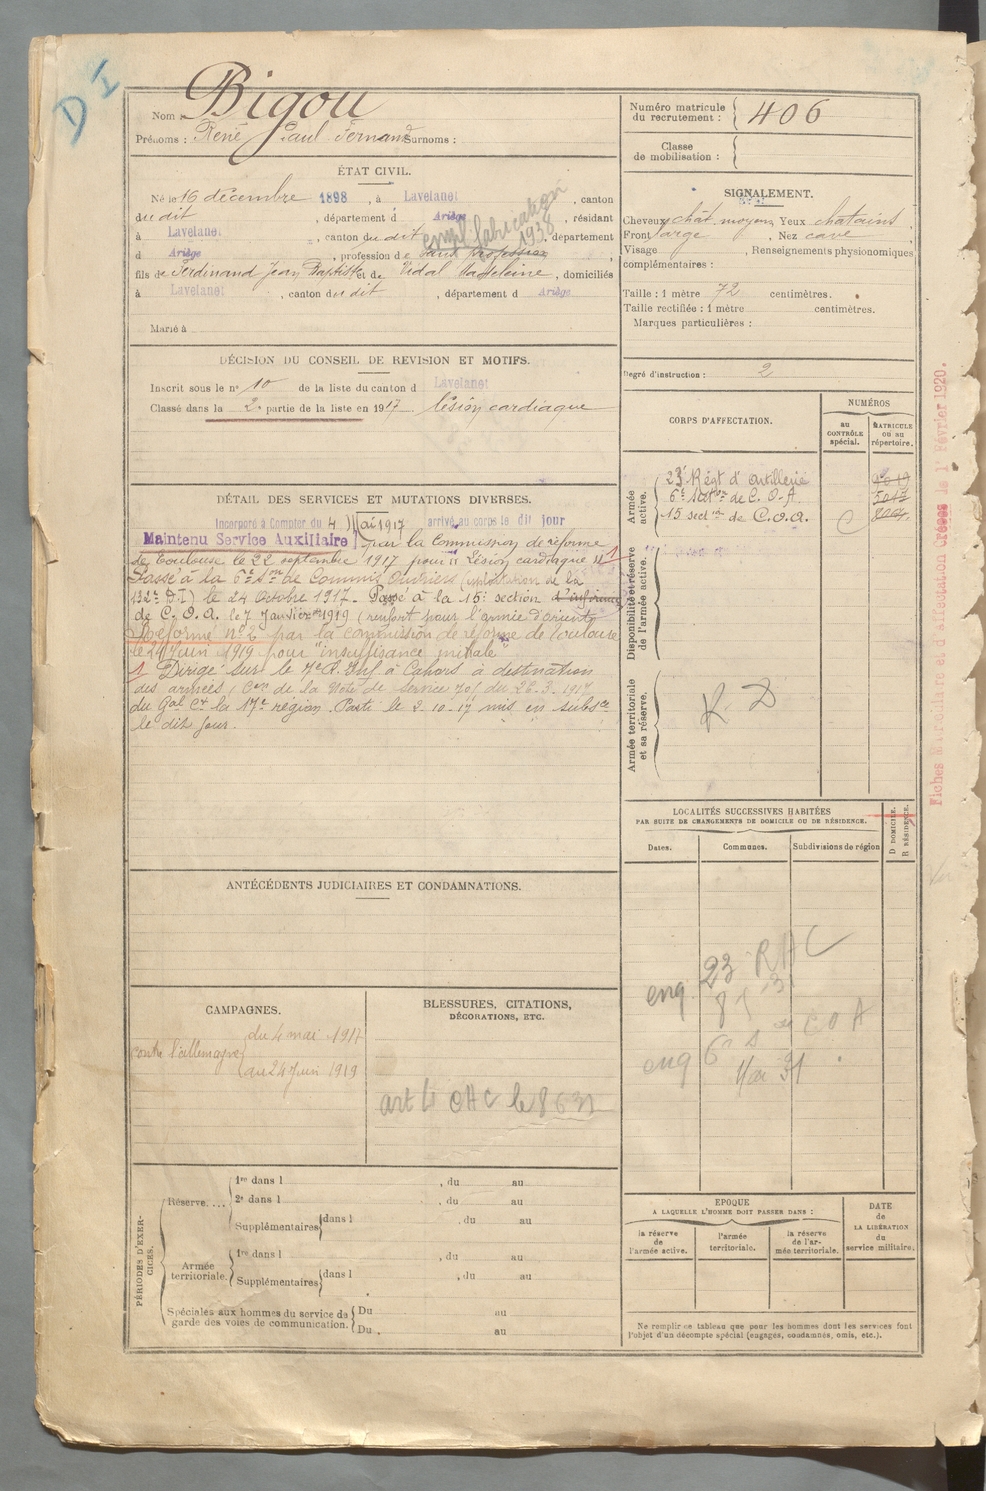 D I
Nom : Bigou
Prénoms : René Paul Fernand Surnoms :
Numéro matricule du recrutement : 406
Classe de mobilisation :
ÉTAT CIVIL.
Né le 16 décembre 1898, à Lavelanet, canton
du dit, département d Ariège, résidant
à Lavelanet, canton du dit, département
d Ariège, profession de sans profession
empl. fabrication 1938
fils de Ferdinand Jean Baptiste et de Vidal Madeleine, domiciliés
à Lavelanet, canton du dit, département d Ariège
Marié à
SIGNALEMENT.
Cheveux chât. moyen Yeux chatains
Front large, Nez cave
Visage, Renseignements physionomiques
complémentaires :
Taille : 1 mètre 72 centimètres.
Taille rectifiée : 1 mètre centimètres.
Marques particulières :
Degré d'instruction : 2
DÉCISION DU CONSEIL DE REVISION ET MOTIFS.
Inscrit sous le n° 10 de la liste du canton d Lavelanet
Classé dans la 2e partie de la liste en 1917. lésion cardiaque
CORPS D'AFFECTATION.
NUMÉROS
au CONTRÔLE spécial.
MATRICULE ou au répertoire.
Armée active.
23e Régt d'Artillerie
6e Section de C.O.A.
15 section de C.O.A.
Disponibilité et réserve de l'armée active.
Armée territoriale et sa réserve.
R D
DÉTAIL DES SERVICES ET MUTATIONS DIVERSES.
Incorporé à Compter du 4 Mai 1917 arrivé au corps le dit jour
Maintenu Service Auxiliaire par la Commission de réforme
de Toulouse le 22 septembre 1917 pour "Lésion cardiaque" 1
Passé à la 6e Son de Commis Ouvriers
132e D.I) le 24 Octobre 1917. Passé à la 15e section d'infirmiers
de C.O.A. le 7 Janvier 1919 (renfort pour l'armée d'orient)
Réformé n° 2 par la commission de réforme de Toulouse
le 24 Juin 1919 pour "insuffisance mitrale"
1 Dirigé sur le 7e R. Inf à Cahors à destination
des armées (Con de la Note de service 70/ du 26.3.1917
du Gal Ct la 17e région. Parti le 2-10-17 mis en subsce
le dit jour.
LOCALITÉS SUCCESSIVES HABITÉES
PAR SUITE DE CHANGEMENTS DE DOMICILE OU DE RÉSIDENCE.
D DOMICILE.
R RÉSIDENCE.
Dates.
Communes.
Subdivisions de région
eng 23 RAC
eng 6e S on COA
ANTÉCÉDENTS JUDICIAIRES ET CONDAMNATIONS.
CAMPAGNES.
contre l'allemagne
du 4 mai 1917
au 24 Juin 1919
BLESSURES, CITATIONS,
DÉCORATIONS, ETC.
PÉRIODES D'EXERCICES.
Réserve....
1re dans l, du au
2e dans l, du au
Supplémentaires dans l, du au
Armée territoriale.
1re dans l, du au
Supplémentaires dans l, du au
Spéciales aux hommes du service de garde des voies de communication.
Du au
Du au
EPOQUE
A LAQUELLE L'HOMME DOIT PASSER DANS :
la réserve de l'armée active.
l'armée territoriale.
la réserve de l'armée territoriale.
DATE de LA LIBÉRATION du service militaire.
Ne remplir ce tableau que pour les hommes dont les services font
l'objet d'un décompte spécial (engagés, condamnés, omis, etc.).
Fiches Matriculaire et d'affectation créées le 1er Février 1920.